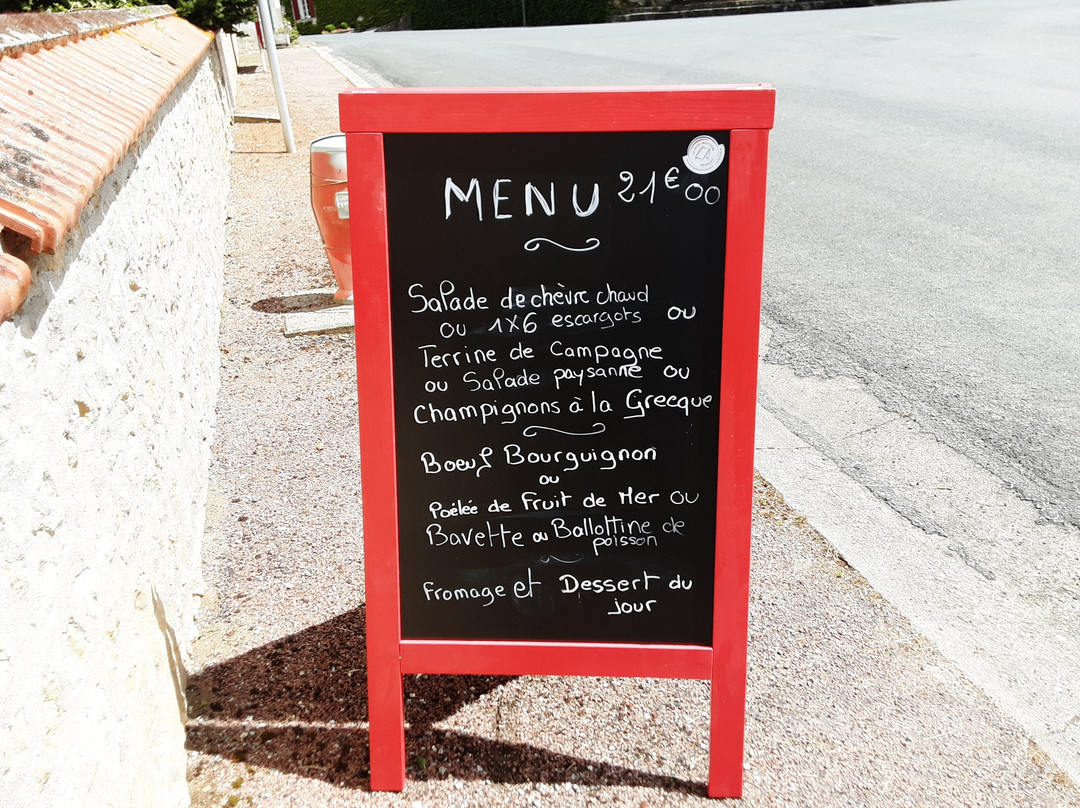 MENU 21€00
Salade de chèvre chaud
ou 1x6 escargots ou
Terrine de Campagne
ou Salade paysanne ou
Champignons à la Grecque
Boeuf Bourguignon
ou
Poêlée de Fruit de Mer ou
Bavette ou Ballottine de
poisson
Fromage et Dessert du
jour